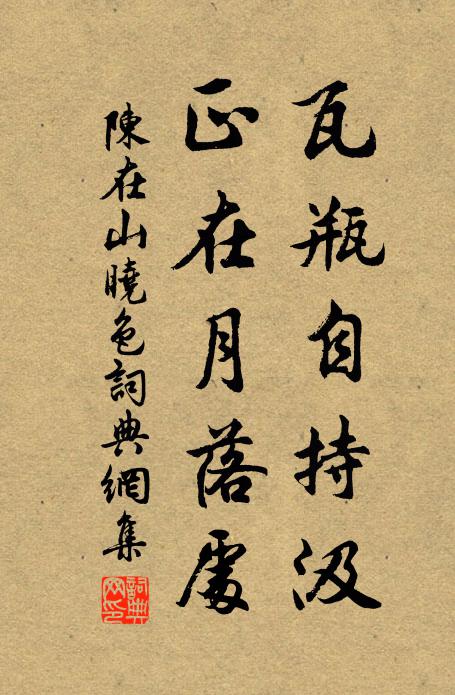 瓦瓶自持汲
正在月落處
陳在山曉色詞典網集
詞典
网印